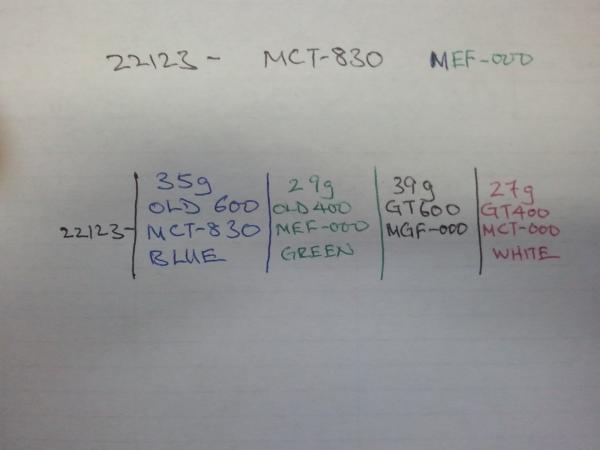 22123- MCT-830 MEF-000
35g 29g 39g 27g
OLD 600 OLD 400 GT600 GT400
22123- MCT-830 MEF-000 MGF-000 MCT-000
BLUE GREEN WHITE